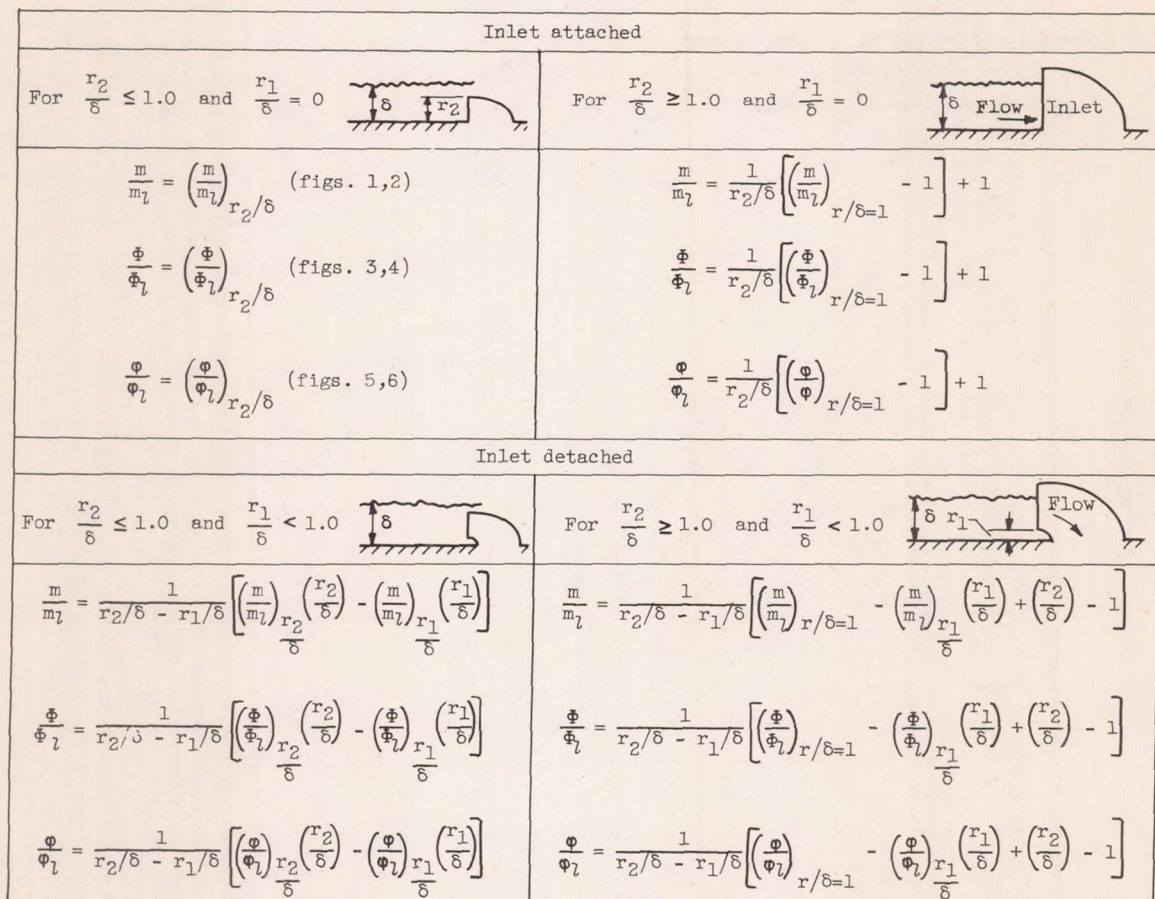 Inlet attached
For r₂/δ ≤ 1.0 and r₁/δ = 0
δ r₂
For r₂/δ ≥ 1.0 and r₁/δ = 0
δ Flow Inlet
m/m_l = (m/m_l)_{r₂/δ} (figs. 1,2)
Φ/Φ_l = (Φ/Φ_l)_{r₂/δ} (figs. 3,4)
φ/φ_l = (φ/φ_l)_{r₂/δ} (figs. 5,6)
m/m_l = 1/(r₂/δ) [(m/m_l)_{r/δ=1} - 1] + 1
Φ/Φ_l = 1/(r₂/δ) [(Φ/Φ_l)_{r/δ=1} - 1] + 1
φ/φ_l = 1/(r₂/δ) [(φ/φ)_{r/δ=1} - 1] + 1
Inlet detached
For r₂/δ ≤ 1.0 and r₁/δ < 1.0
δ
For r₂/δ ≥ 1.0 and r₁/δ < 1.0
δ r₁ Flow
m/m_l = 1/(r₂/δ - r₁/δ) [(m/m_l)_{r₂/δ} (r₂/δ) - (m/m_l)_{r₁/δ} (r₁/δ)]
Φ/Φ_l = 1/(r₂/δ - r₁/δ) [(Φ/Φ_l)_{r₂/δ} (r₂/δ) - (Φ/Φ_l)_{r₁/δ} (r₁/δ)]
φ/φ_l = 1/(r₂/δ - r₁/δ) [(φ/φ_l)_{r₂/δ} (r₂/δ) - (φ/φ_l)_{r₁/δ} (r₁/δ)]
m/m_l = 1/(r₂/δ - r₁/δ) [(m/m_l)_{r/δ=1} - (m/m_l)_{r₁/δ} (r₁/δ) + (r₂/δ) - 1]
Φ/Φ_l = 1/(r₂/δ - r₁/δ) [(Φ/Φ_l)_{r/δ=1} - (Φ/Φ_l)_{r₁/δ} (r₁/δ) + (r₂/δ) - 1]
φ/φ_l = 1/(r₂/δ - r₁/δ) [(φ/φ_l)_{r/δ=1} - (φ/φ_l)_{r₁/δ} (r₁/δ) + (r₂/δ) - 1]